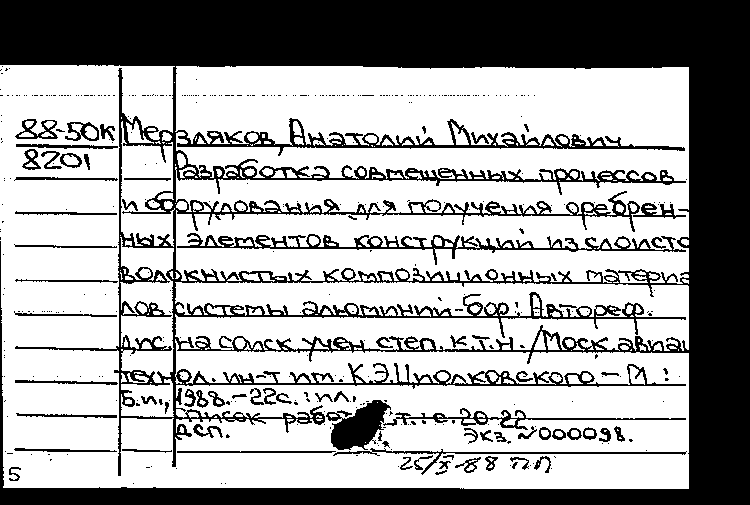 88-50К Мерзляков, Анатолий Михайлович.
8201 Разработка совмещенных процессов
и оборудования для получения оребрен-
ных элементов конструкций из слоисто
волокнистых композиционных материа
лов системы алюминий-бор: Автореф.
дис. на соиск. учен степ. к.т.н. / Моск. авиац
технол. ин-т им. К.Э.Циолковского. - М.:
Б.и., 1988. - 22с.: ил.
Список работ т.: с. 20-22
ДСП. Экз. №000098.
25/X-88 ПП
5